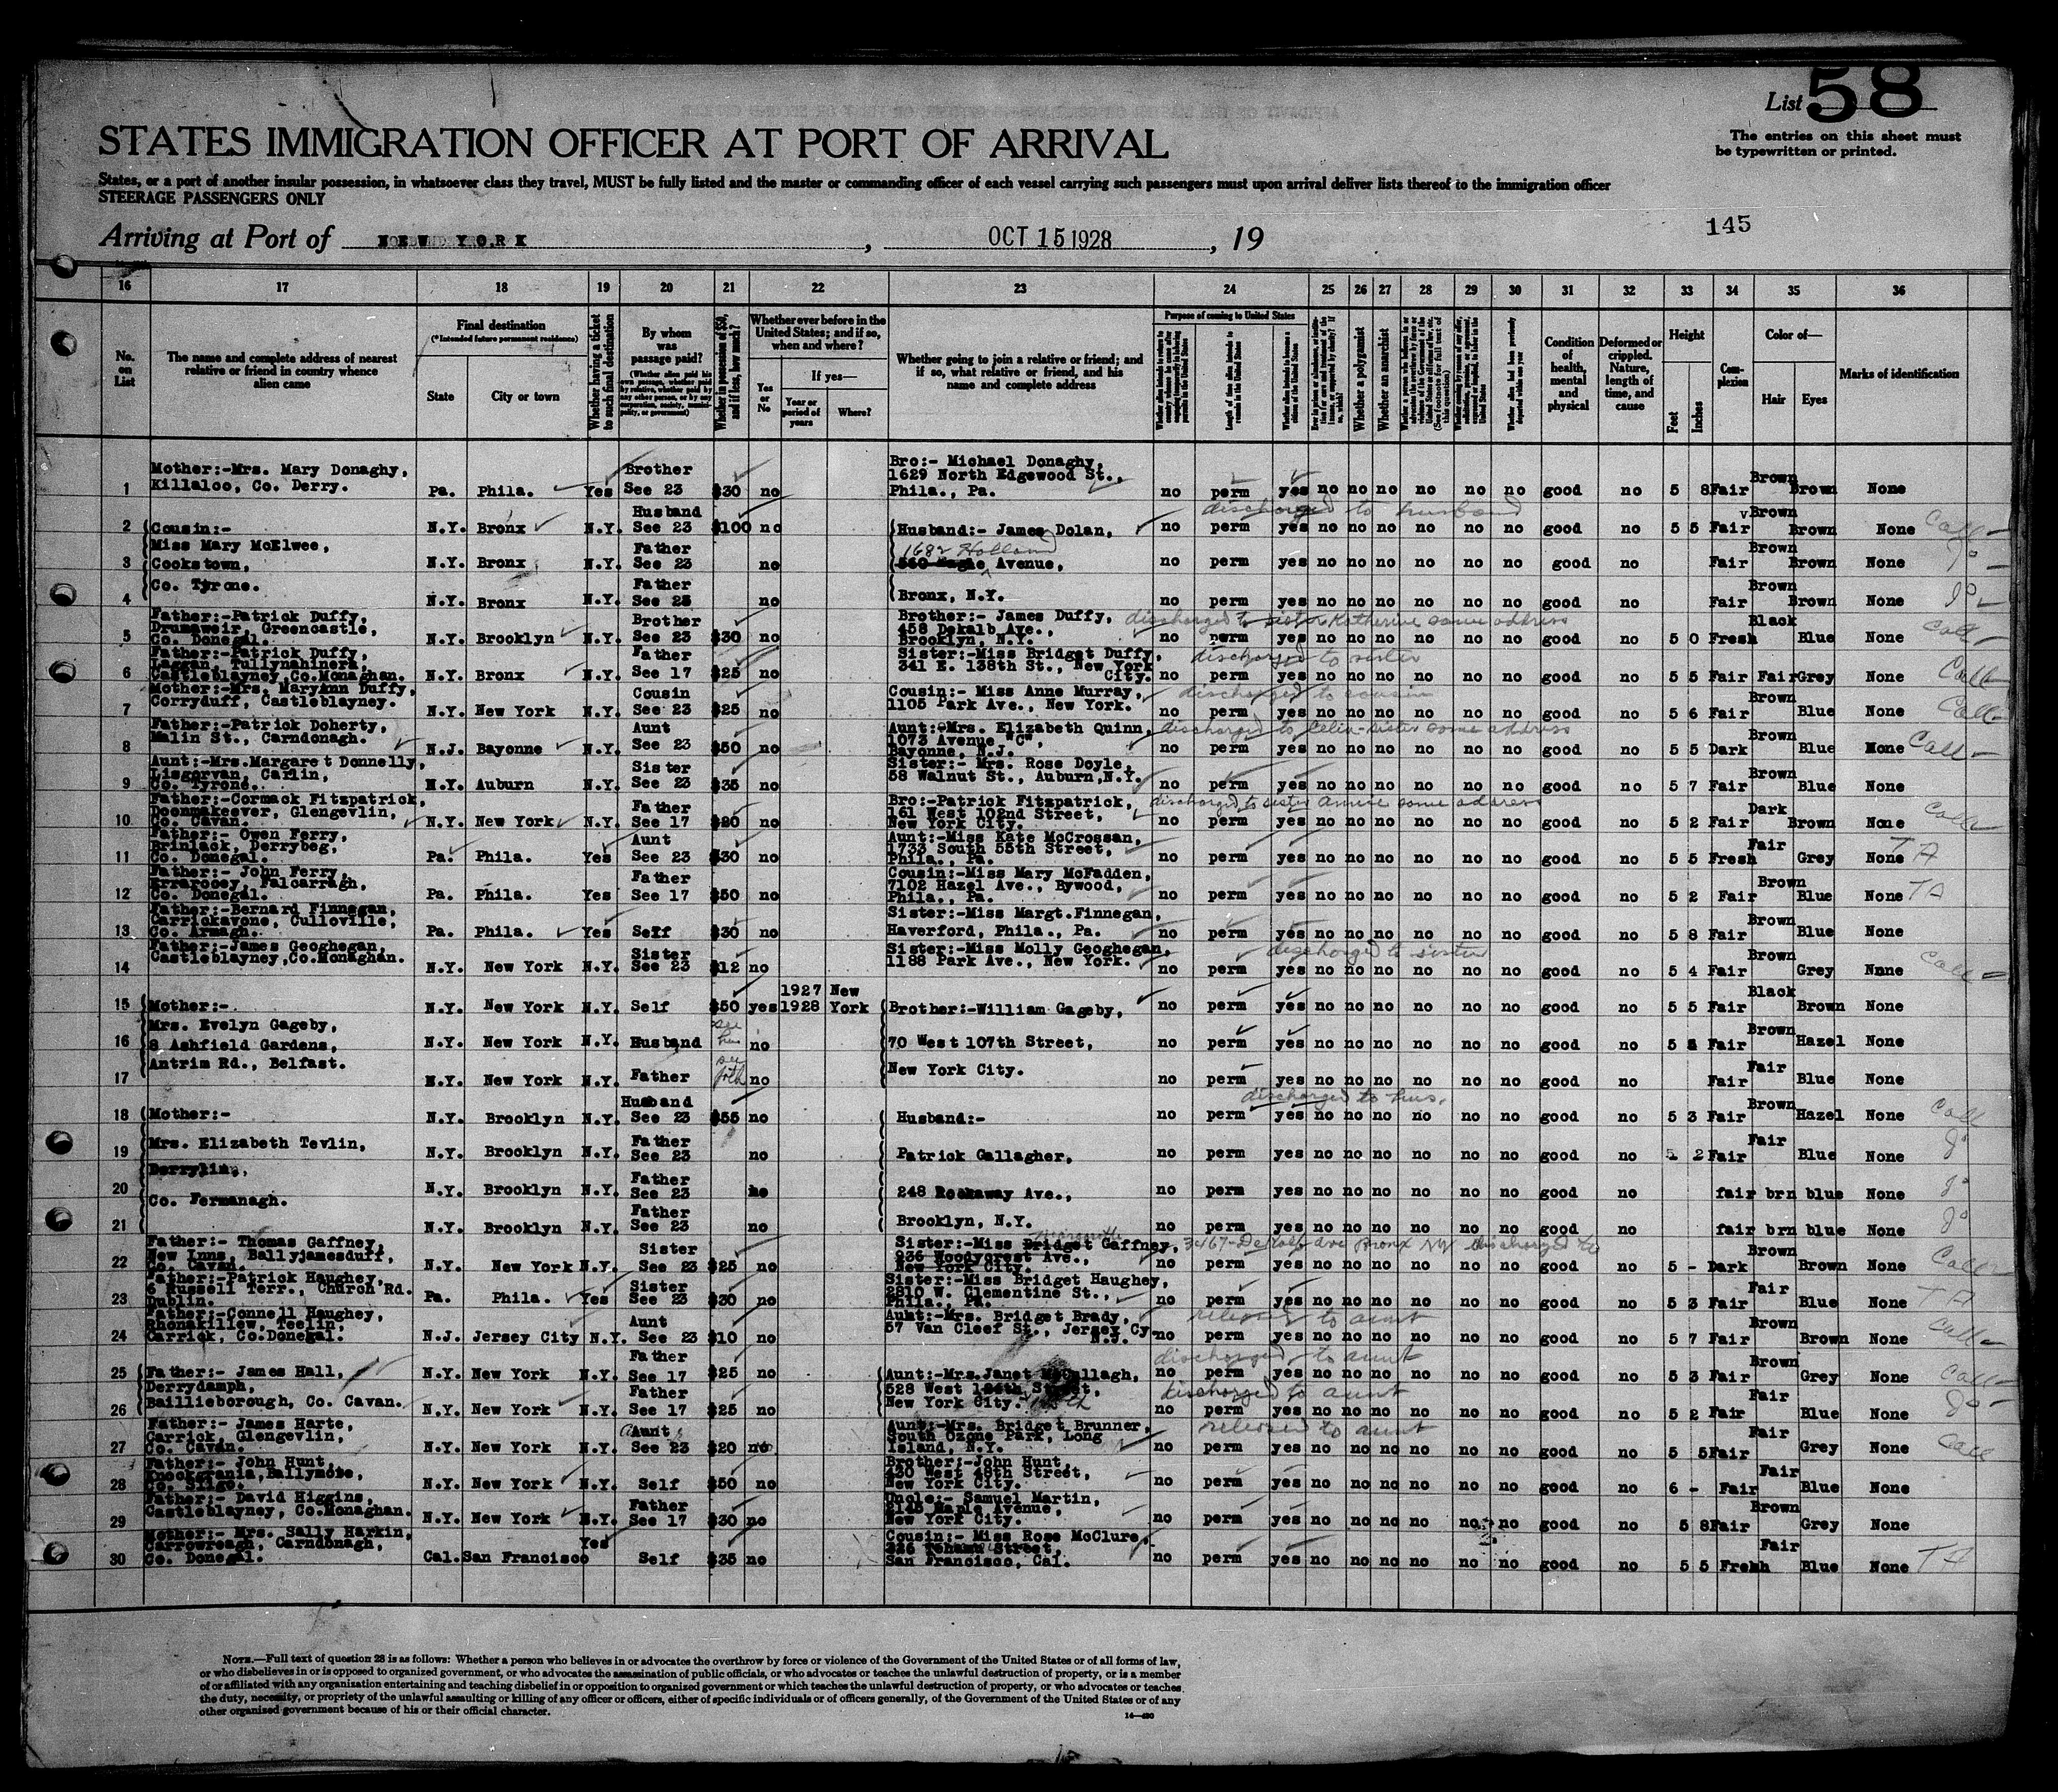 List 58
The entries on this sheet must
be typewritten or printed.
STATES IMMIGRATION OFFICER AT PORT OF ARRIVAL
States, or a port of another insular possession, in whatsoever class they travel, MUST be fully listed and the master or commanding officer of each vessel carrying such passengers must upon arrival deliver lists thereof to the immigration officer
STEERAGE PASSENGERS ONLY
145
Arriving at Port of NEW YORK, OCT 15 1928, 19
16 17 18 19 20 21 22 23 24 25 26 27 28 29 30 31 32 33 34 35 36
No. on List
The name and complete address of nearest relative or friend in country whence alien came
Final destination
(*Intended future permanent residence)
State
City or town
Whether having a ticket to such final destination
By whom was passage paid?
(Whether alien paid his own passage, whether paid by relative, whether paid by any other person, or by any corporation, society, municipality, or government)
Whether in possession of $50, and if less, how much?
Whether ever before in the United States; and if so, when and where?
Yes or No
If yes—
Year or period of years
Where?
Whether going to join a relative or friend; and if so, what relative or friend, and his name and complete address
Purpose of coming to United States
Length of time alien intends to remain in the United States
Whether alien intends to become a citizen of the United States
Whether a polygamist
Whether an anarchist
Condition of health, mental and physical
Deformed or crippled. Nature, length of time, and cause
Height
Feet
Inches
Complexion
Color of—
Hair
Eyes
Marks of identification
1 Mother:-Mrs. Mary Donaghy, Killaloo, Co. Derry. Pa. Phila. Yes Brother See 23 $30 no Bro:- Michael Donaghy, 1629 North Edgewood St., Phila., Pa. no perm yes no no no no no no good no 5 8 Fair Brown Brown None
discharged to husband
2 Cousin:- N.Y. Bronx N.Y. Husband See 23 $100 no Husband:- James Dolan, no perm yes no no no no no no good no 5 5 Fair Brown Brown None Call
3 Miss Mary McElwee, Cookstown, N.Y. Bronx N.Y. Father See 23 no 1682 Holland Avenue, no perm yes no no no no no no good no Fair Brown Brown None
4 Co. Tyrone. N.Y. Bronx N.Y. Father See 23 no Bronx, N.Y. no perm yes no no no no no no good no Fair Brown Brown None
discharged to sister Katherine same address
5 Father:-Patrick Duffy, Drumaweir, Greencastle, Co. Donegal. N.Y. Brooklyn N.Y. Brother See 23 $30 no Brother:- James Duffy, 458 Dekalb Ave., Brooklyn, N.Y. no perm yes no no no no no no good no 5 0 Fresh Black Blue None Call
discharged to sister
6 Father:-Patrick Duffy, Laggan, Tullynahinera, Castleblayney, Co.Monaghan. N.Y. Bronx N.Y. Father See 17 $25 no Sister:-Miss Bridget Duffy, 341 E. 138th St., New York City. no perm yes no no no no no no good no 5 5 Fair Fair Grey None Call
discharged to cousin
7 Mother:-Mrs. MaryAnn Duffy, Corryduff, Castleblayney. N.Y. New York N.Y. Cousin See 23 $25 no Cousin:- Miss Anne Murray, 1105 Park Ave., New York. no perm yes no no no no no no good no 5 6 Fair Brown Blue None Call
discharged to Celia-sister same address
8 Father:-Patrick Doherty, Malin St., Carndonagh. N.J. Bayonne N.Y. Aunt See 23 $50 no Aunt:-Mrs. Elizabeth Quinn, 1073 Avenue "C", Bayonne, N.J. no perm yes no no no no no no good no 5 5 Dark Brown Blue None Call
9 Aunt:-Mrs.Margaret Donnelly, Lisgorvan, Carlin, Co. Tyrone. N.Y. Auburn N.Y. Sister See 23 $35 no Sister:- Mrs. Rose Doyle, 58 Walnut St., Auburn,N.Y. no perm yes no no no no no no good no 5 7 Fair Brown Blue None
discharged to sister Annie same address
10 Father:-Cormack Fitzpatrick, Doonmakeever, Glengevlin, Co. Cavan. N.Y. New York N.Y. Father See 17 $20 no Bro:-Patrick Fitzpatrick, 161 West 102nd Street, New York City. no perm yes no no no no no no good no 5 2 Fair Dark Brown None Call
11 Father:- Owen Ferry, Brinlack, Derrybeg, Co. Donegal. Pa. Phila. Yes Aunt See 23 $30 no Aunt:-Miss Kate McCrossan, 1733 South 55th Street, Phila., Pa. no perm yes no no no no no no good no 5 5 Fresh Fair Grey None TA
12 Father:- John Ferry, Errarooey, Falcarragh, Co. Donegal. Pa. Phila. Yes Father See 17 $50 no Cousin:-Miss Mary McFadden, 7102 Hazel Ave., Bywood, Phila., Pa. no perm yes no no no no no no good no 5 2 Fair Brown Blue None TA
13 Father:-Bernard Finnegan, Carrickavone, Culloville, Co. Armagh. Pa. Phila. Yes Self $30 no Sister:-Miss Margt.Finnegan, Haverford, Phila., Pa. no perm yes no no no no no no good no 5 8 Fair Brown Blue None
discharged to sister
14 Father:-James Geoghegan, Castleblayney,Co.Monaghan. N.Y. New York N.Y. Sister See 23 $12 no Sister:-Miss Molly Geoghegan, 1188 Park Ave., New York. no perm yes no no no no no no good no 5 4 Fair Brown Grey None Call
15 Mother:- N.Y. New York N.Y. Self $50 yes 1927 1928 New York Brother:-William Gageby, no perm yes no no no no no no good no 5 5 Fair Black Brown None
16 Mrs. Evelyn Gageby, 8 Ashfield Gardens, N.Y. New York N.Y. Husband see hus no 70 West 107th Street, no perm yes no no no no no no good no 5 Fair Brown Hazel None
17 Antrim Rd., Belfast. N.Y. New York N.Y. Father see fath no New York City. no perm yes no no no no no no good no Fair Fair Blue None
discharged to hus.
18 Mother:- N.Y. Brooklyn N.Y. Husband See 23 $55 no Husband:- no perm yes no no no no no no good no 5 3 Fair Brown Hazel None Call
19 Mrs. Elizabeth Tevlin, N.Y. Brooklyn N.Y. Father See 23 no Patrick Gallagher, no perm yes no no no no no no good no 5 2 Fair Fair Blue None
20 Derrylin, Co. Fermanagh. N.Y. Brooklyn N.Y. Father See 23 no 248 Rockaway Ave., no perm yes no no no no no no good no fair brn blue None
21 N.Y. Brooklyn N.Y. Father See 23 no Brooklyn, N.Y. no perm yes no no no no no no good no fair brn blue None
3467-DeKalb Ave Bronx NY discharged to
22 Father:- Thomas Gaffney, New Inns, Ballyjamesduff, Co. Cavan. N.Y. New York N.Y. Sister See 23 $25 no Sister:-Miss Bridget Gaffney, 936 Woodycrest Ave., New York City. no perm yes no no no no no no good no 5 - Dark Brown Brown None Call
23 Father:-Patrick Haughey, 6 Russell Terr., Church Rd. Dublin. Pa. Phila. Yes Sister See 23 $30 no Sister:-Miss Bridget Haughey, 2810 W. Clementine St., Phila., Pa. no perm yes no no no no no no good no 5 3 Fair Fair Blue None TA
released to aunt
24 Father:-Connell Haughey, Rhonakillew, Teelin, Carrick, Co.Donegal. N.J. Jersey City N.Y. Aunt See 23 $10 no Aunt:-Mrs. Bridget Brady, 57 Van Cleef St., Jersey Cy. N.J. no perm yes no no no no no no good no 5 7 Fair Brown Brown None Call
discharged to aunt
25 Father:- James Hall, N.Y. New York N.Y. Father See 17 $25 no Aunt:-Mrs.Janet McCullagh, no perm yes no no no no no no good no 5 3 Fair Brown Grey None Call
discharged to aunt
26 Derrydamph, Baillieborough, Co. Cavan. N.Y. New York N.Y. Father See 17 $25 no 528 West Street, New York City. no perm yes no no no no no no good no 5 2 Fair Fair Blue None
released to aunt
27 Father:- James Harte, Carrick, Glengevlin, Co. Cavan. N.Y. New York N.Y. Aunt See 23 $20 no Aunt:-Mrs. Bridget Brunner, South Ozone Park, Long Island, N.Y. no perm yes no no no no no no good no 5 5 Fair Fair Grey None Call
28 Father:- John Hunt, Knockgrania,Ballymote, Co. Sligo. N.Y. New York N.Y. Self $50 no Brother:-John Hunt, 430 West 48th Street, New York City. no perm yes no no no no no no good no 6 - Fair Fair Blue None
29 Father:- David Higgins, Castleblayney, Co.Monaghan. N.Y. New York N.Y. Father See 17 $30 no Uncle:- Samuel Martin, 2145 Maple Avenue, New York City. no perm yes no no no no no no good no 5 8 Fair Brown Grey None
30 Mother:- Mrs. Sally Harkin, Carrowreagh, Carndonagh, Co. Donegal. Cal. San Francisco Yes Self $35 no Cousin:- Miss Rose McClure, 326 Tehama Street, San Francisco, Cal. no perm yes no no no no no no good no 5 5 Fresh Fair Blue None TA
NOTE.—Full text of question 28 is as follows: Whether a person who believes in or advocates the overthrow by force or violence of the Government of the United States or of all forms of law,
or who disbelieves in or is opposed to organized government, or who advocates the assassination of public officials, or who advocates or teaches the unlawful destruction of property, or is a member
of or affiliated with any organization entertaining and teaching disbelief in or opposition to organized government or which teaches the unlawful destruction of property, or who advocates or teaches
the duty, necessity, or propriety of the unlawful assaulting or killing of any officer or officers, either of specific individuals or of officers generally, of the Government of the United States or of any
other organized government because of his or their official character.
14—430